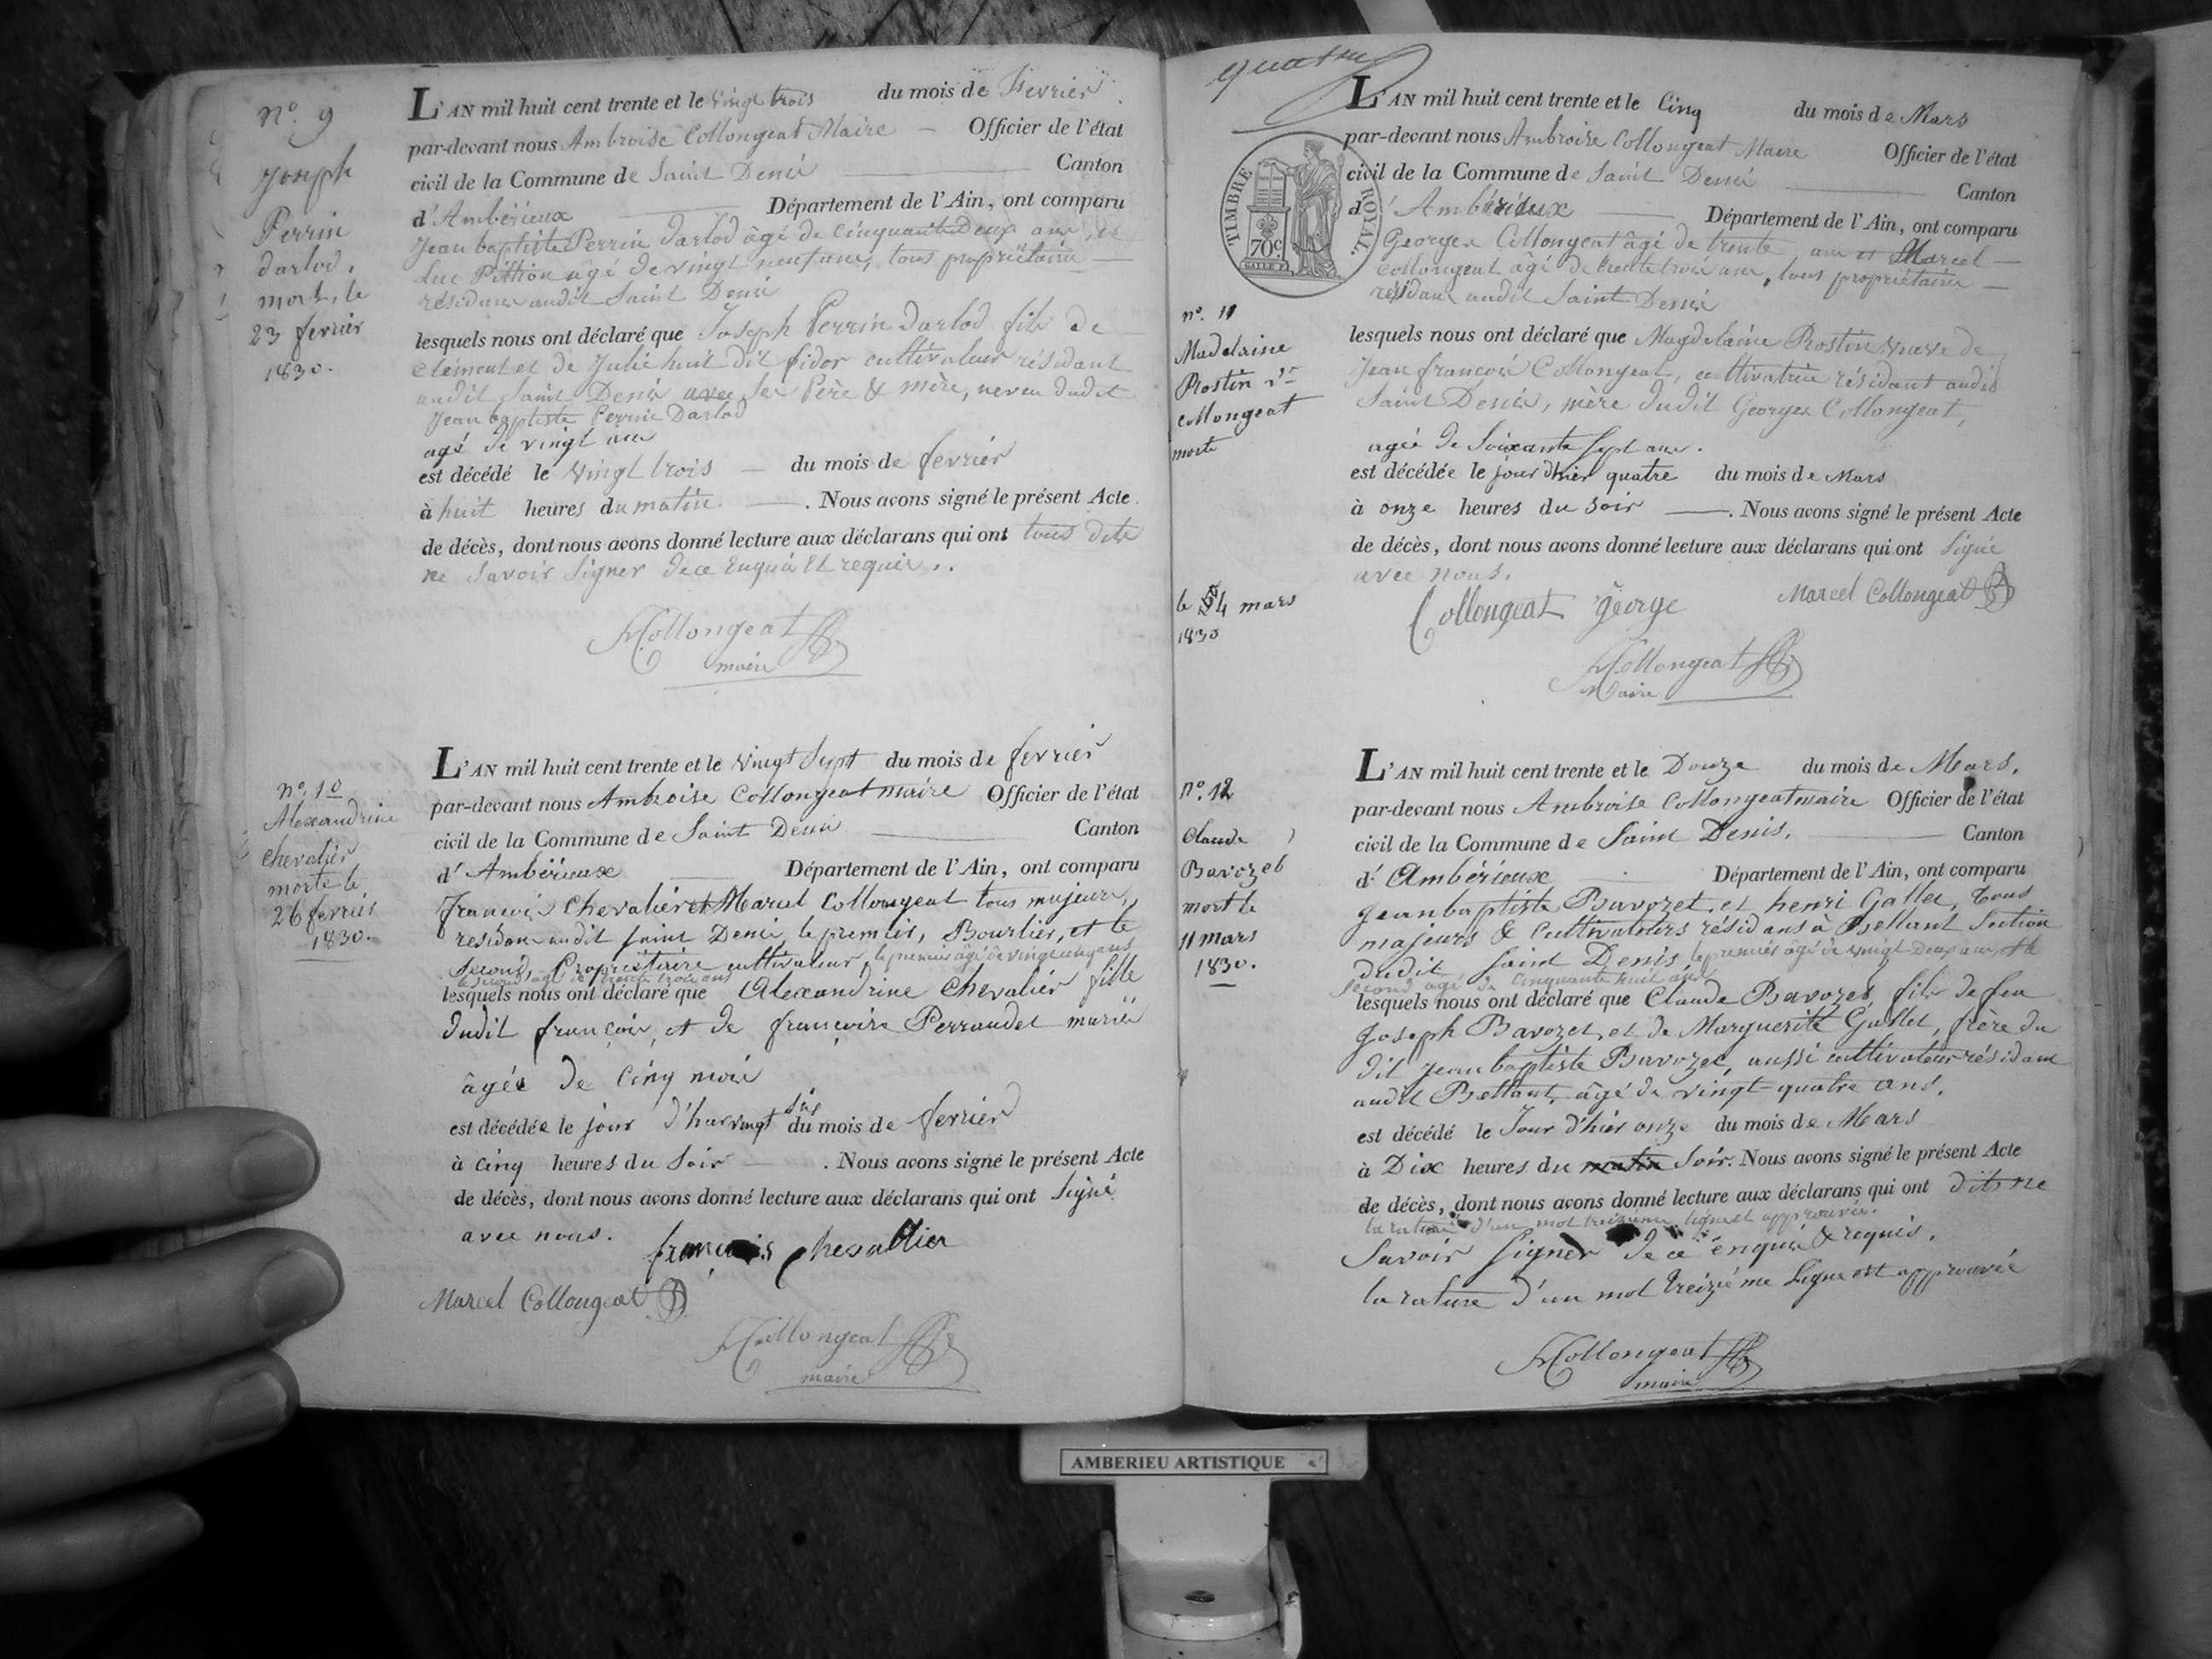 n.° 9
Joseph
Perrin
darlod,
mort, le
23 fevrier
1830.
L'AN mil huit cent trente et le vingt trois du mois de Fevrier
par-devant nous Ambroise Collongeat Maire Officier de l'état
civil de la Commune de Saint Denis Canton
d'Ambérieux Département de l'Ain, ont comparu
Jean baptiste Perrin darlod âgé de Cinquante Deux ans, et
Luc Pittion âgé de vingt neuf ans, tous propriétaires
résidans audit Saint Denis
lesquels nous ont déclaré que Joseph Perrin darlod fils de
Clément et de Julie huit dit fidor cultivateur résidant
audit Saint Denis avec ses Père & mère, neveu dudit
Jean baptiste Perrin Darlod
agé de vingt ans
est décédé le vingt trois du mois de fevrier
à huit heures du matin . Nous avons signé le présent Acte
de décès, dont nous avons donné lecture aux déclarans qui ont tous dits
ne Savoir Signer de ce Enquis Et requis.
Collongeat
maire
n.° 10
Alexandrine
Chevalier
morte le
26 fevrier
1830.
L'AN mil huit cent trente et le vingt Sept du mois de fevrier
par-devant nous Ambroise Collongeat maire Officier de l'état
civil de la Commune de Saint Denis Canton
d'Ambérieux Département de l'Ain, ont comparu
François Chevalier et Marcel Collongeat tous majeurs,
residans audit Saint Denis, le premier, Bourlier, et le
Second, Propriétaire cultivateur, le premier âgé de vingt cinq ans
le second, agé de trente trois ans
lesquels nous ont déclaré que Alexandrine Chevalier fille
dudit françois, et de françoise Perraudet mariés
âgée de Cinq mois
est décédée le jour d'hier vingt six du mois de fevrier
à cinq heures du Soir . Nous avons signé le présent Acte
de décès, dont nous avons donné lecture aux déclarans qui ont Signé
avec nous.
françois Chevallier
Marcel Collongeat
Collongeat
maire
quatre
TIMBRE ROYAL.
70c
n.° 11
Madelaine
Rostin v.e
Collongeat
morte
le 4 mars
1830
L'AN mil huit cent trente et le Cinq du mois de Mars
par-devant nous Ambroise Collongeat Maire Officier de l'état
civil de la Commune de Saint Denis Canton
d'Ambérieux Département de l'Ain, ont comparu
Georges Collongeat âgé de trente ans et Marcel
Collongeat âgé de trente trois ans, tous propriétaires
résidans audit Saint Denis
lesquels nous ont déclaré que Magdelaine Rostin veuve de
Jean françois Collongeat, cultivatrice résidant audit
Saint Denis, mère dudit Georges Collongeat,
agée de Soixante Sept ans.
est décédée le jour d'hier quatre du mois de Mars
à onze heures du Soir . Nous avons signé le présent Acte
de décès, dont nous avons donné lecture aux déclarans qui ont Signé
avec nous.
Collongeat george Marcel Collongeat
Collongeat
Maire
n.° 12
Claude
Bavozet
mort le
11 mars
1830.
L'AN mil huit cent trente et le Douze du mois de Mars.
par-devant nous Ambroise Collongeat maire Officier de l'état
civil de la Commune de Saint Denis. Canton
d'Ambérieux Département de l'Ain, ont comparu
Jean baptiste Bavozet, et henri Gallet, tous
majeurs & Cultivateurs résidans à Bettant Section
dudit Saint Denis, le premier âgé de vingt Deux ans, et le
second agé de Cinquante huit ans
lesquels nous ont déclaré que Claude Bavozet, fils de feu
Joseph Bavozet, et de Marguerite Gallet, frère du
dit Jean baptiste Bavozet, aussi cultivateur résidant
audit Bettant, âgé de vingt-quatre ans.
est décédé le Jour d'hier onze du mois de Mars
à Dix heures du matin Soir. Nous avons signé le présent Acte
de décès, dont nous avons donné lecture aux déclarans qui ont dits ne
la rature d'un mot treizieme ligne et approuvée.
Savoir Signer de ce enquis & requis.
la rature d'un mot treizième Ligne est approuvée
Collongeat
maire
AMBERIEU ARTISTIQUE